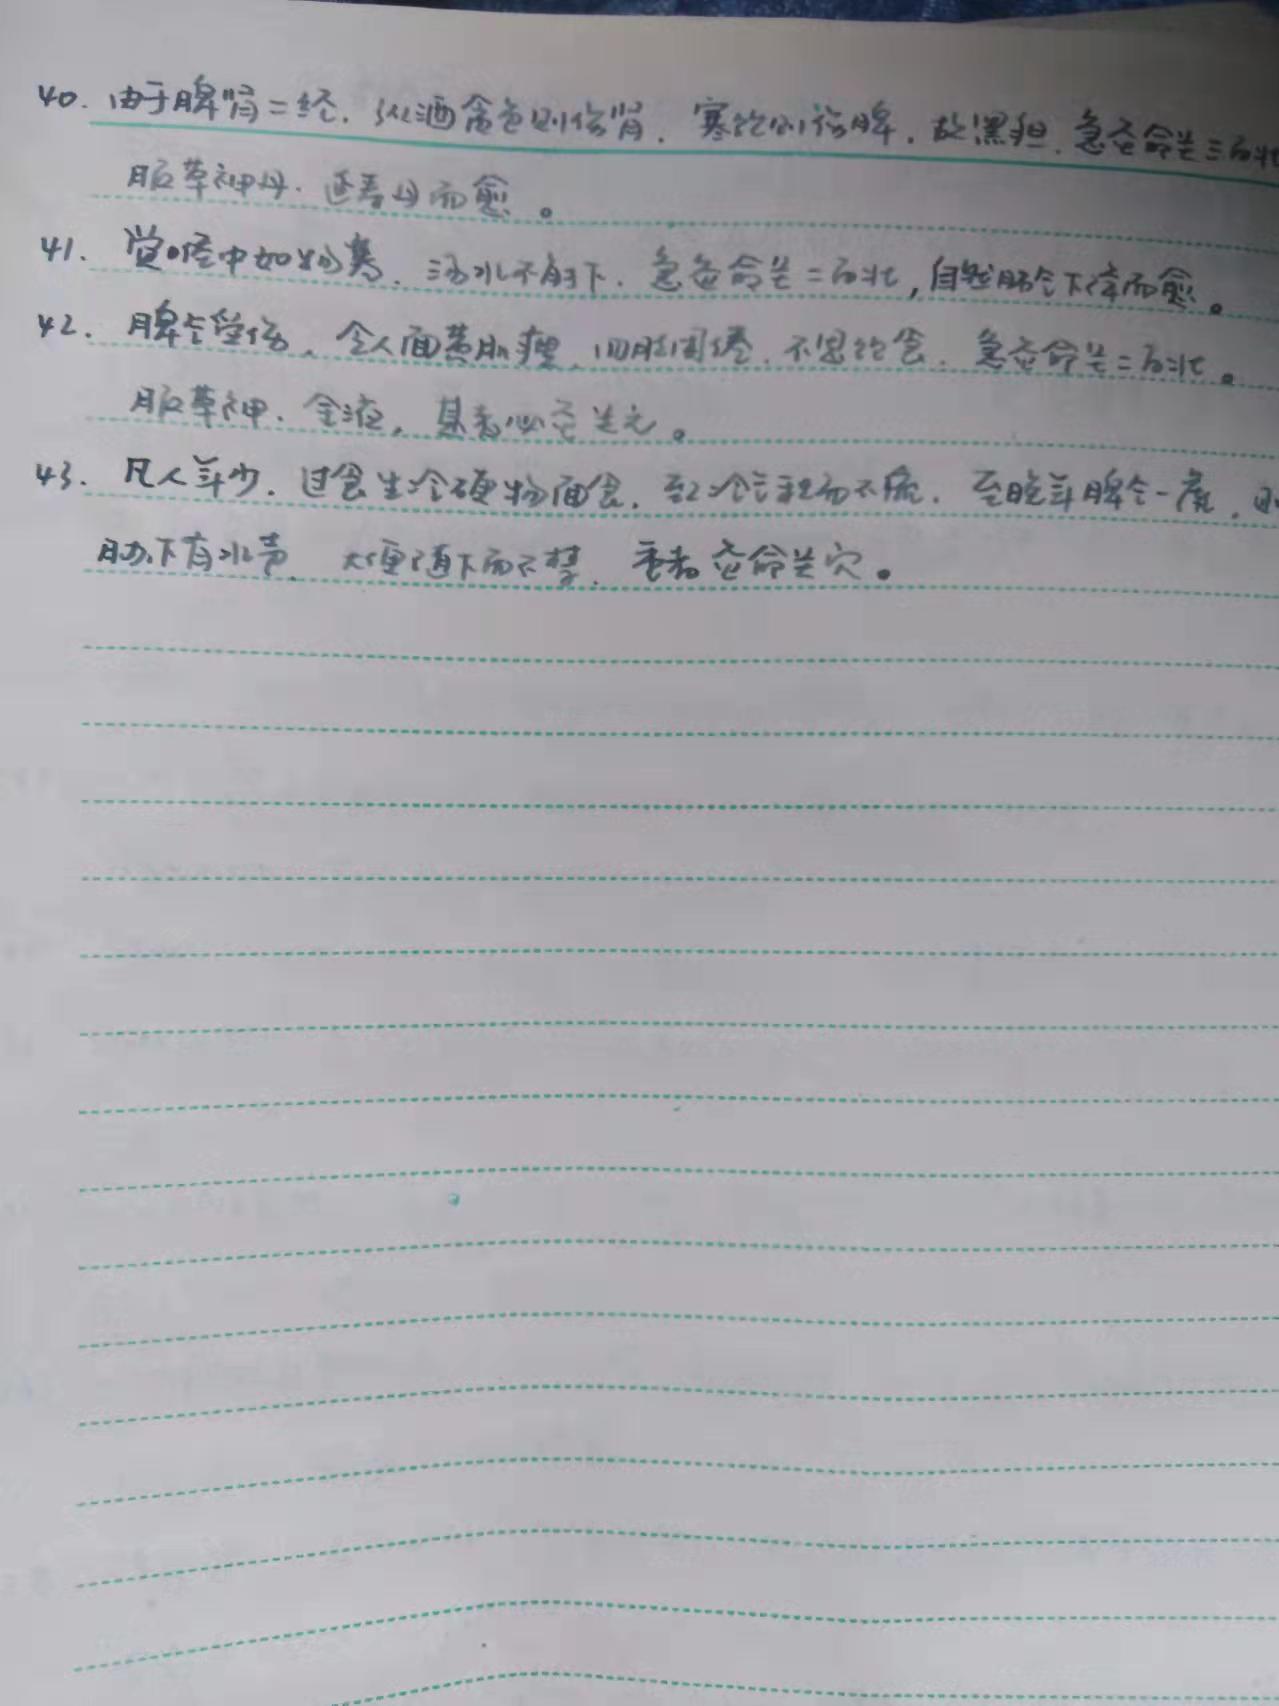 40. 由于脾肾二经. 纵酒贪色则伤肾. 寒饮则伤脾. 故黑疸. 急灸命关三百壮
服草神丹. 延寿丹而愈。
41. 觉喉中如物塞. 汤水不能下. 急灸命关二百壮, 自然肺气下降而愈。
42. 脾气受伤、令人面黄肌瘦、四肢困倦. 不思饮食. 急灸命关二百壮。
服草神. 金液, 甚者必灸关元。
43. 凡人年少. 过食生冷硬物面食. 致冷气积而不流. 至晚年脾气一虚.
胁下有水声、大便通下而不禁. 重者灸命关穴。